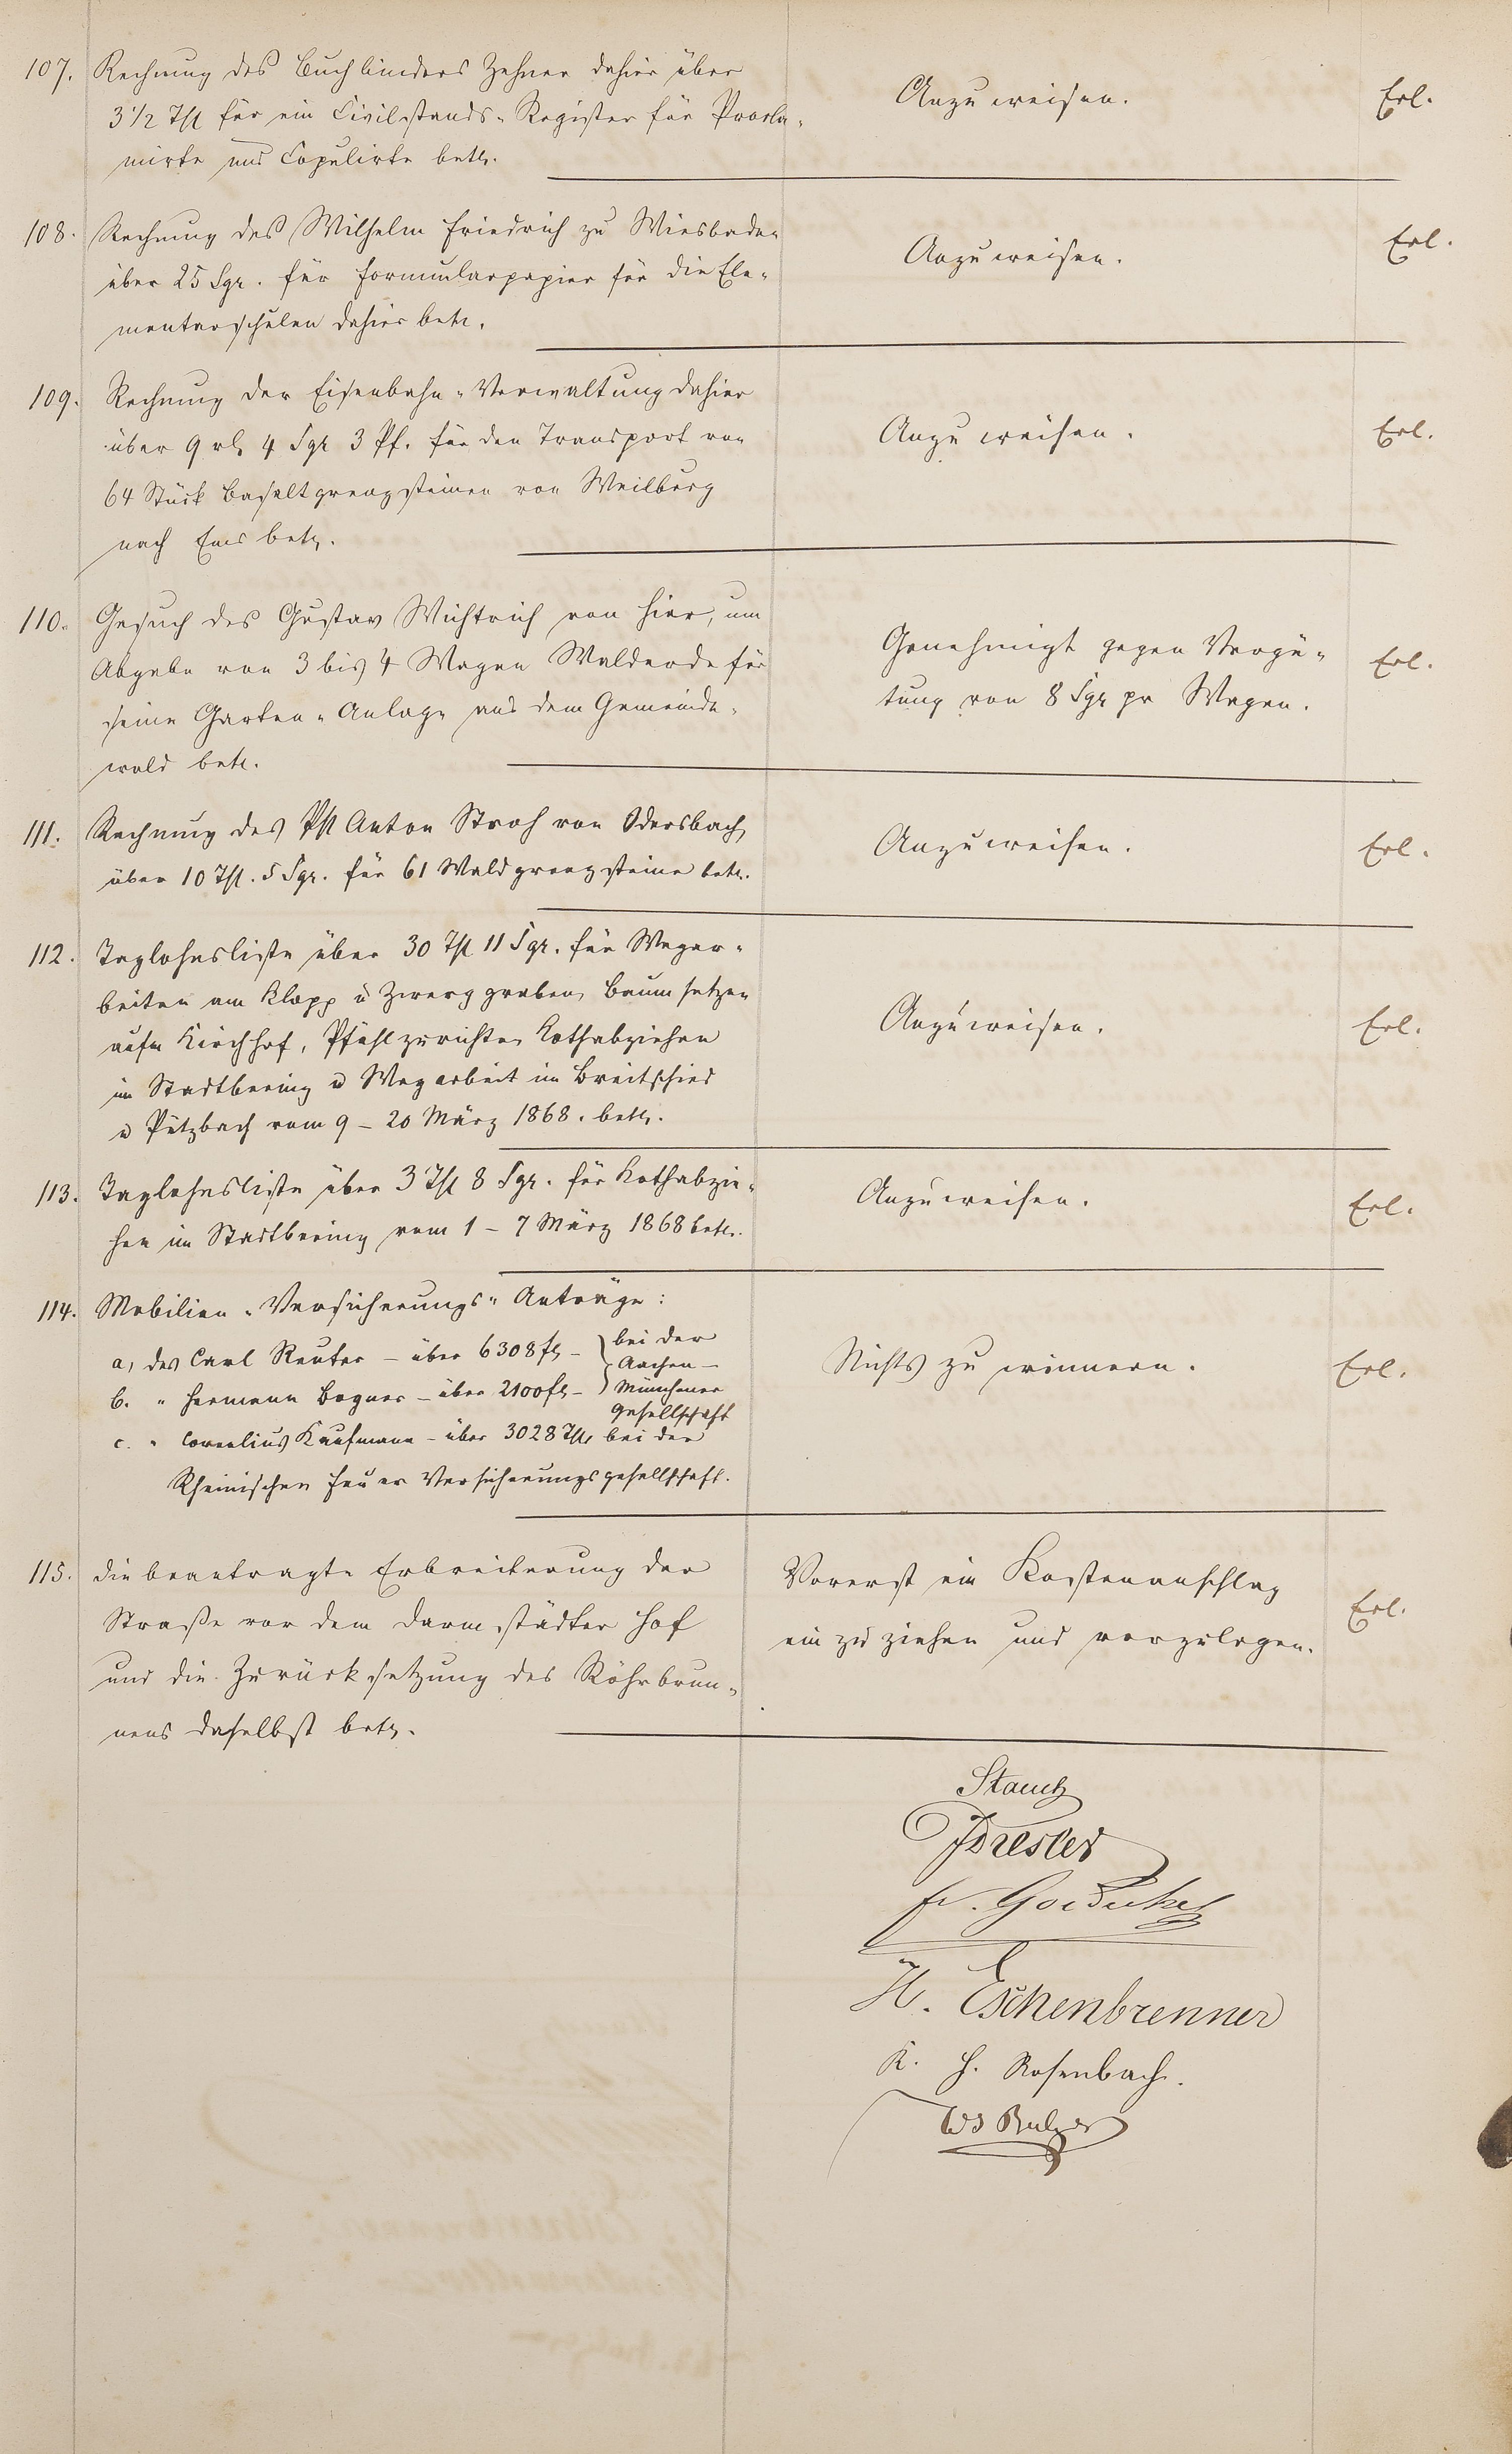 107. Rechnung des Buchbinders Zehner dahier über
3 1/2 Thl für ein Civilstands-Register für Procla-
mirte und Copulirte betr.
Anzuweisen.
Erl.
108. Rechnung des Wilhelm Friedrich zu Wiesbaden
über 25 Sgr. für Formularpapier für die Ele-
mentarschulen dahier betr.
Anzuweisen.
Erl.
109. Rechnung der Eisenbahn-Verwaltung dahier
über 9 rl 4 Sgr 3 Pf. für den Transport von
64 Stück Basaltgrenzsteinen von Weilburg
nach Ems betr.
Anzuweisen.
Erl.
110. Gesuch des Gustav Wichtrich von hier, um
Abgabe von 3 bis 4 Wagen Walderde für
seine Garten-Anlage aus dem Gemeinde-
wald betr.
Genehmigt gegen Vergü-
tung von 8 Sgr pr Wagen.
Erl.
111. Rechnung des Anton Stroh von Odersbach
über 10 Thl. 5 Sgr. für 61 Waldgrenzsteine betr.
Anzuweisen.
Erl.
112. Taglohnsliste über 30 Thl 11 Sgr. für Wegar-
beiten am Klopp u Zwerggraben, Baumsetzen
aufm Kirchhof, Pfähl zurichten Kothabziehen
im Stadtbering u Wegarbeit im Breitschied
u Pützbach vom 9 - 20 März 1868. betr.
Anzuweisen.
Erl.
113. Taglohnsliste über 3 Thl 8 Sgr. für Kothabzie-
hen im Stadtbering vom 1 - 7 März 1868 betr.
Anzuweisen.
Erl.
114. Mobilien-Versicherungs-Anträge:
a, des Carl Reuter - über 6308 fl -
b. " Hermann Bogner - über 2100 fl -
bei der
Aachen-
Münchener
Gesellschaft
c. " Cornelius Kaufmann - über 3028 Thl, bei der
Rheinischen Feuer Versicherungsgesellschaft.
Nichts zu erinnern.
Erl.
115. die beantragte Erbreiterung der
Straße vor dem Darmstädter Hof
und die Zurücksetzung des Röhrbrun-
nens daselbst betr.
Vorerst ein Kostenanschlag
einzuziehen und vorzulegen.
Erl.
Stauch
Fr. Goedecke
H. Eschenbrenner
K. H. Rosenbach.
Balzer